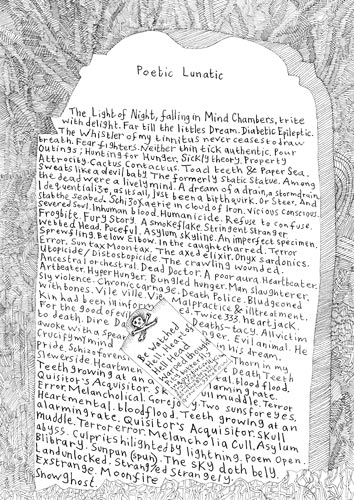 Poetic Lunatic
The Light of Night, falling in Mind Chambers, trite
with delight. Far till the littles Dream. Diabetic Epileptic.
The Whistler of my tinnitus never ceases to draw
breath. Fear fighters. Neither thin tick authentic. Pour
Outings; Hunting for Hunger. Sickly theory, Property
Attrocity. Cactus Contactus. Toad teeth & Paper Sea.
Sweats like a devil baby The formerly Static Statue. Among
the dead were a lively mind. A dream of a drain, a stormdrain.
I dequentialize, as its all, just been a birthquirk. Or Steer, And
stab the seabed. Schizoyaerie in cloud of Iron. Vicious Conscious.
Severed Soul. Inhuman blood. Humanicide. Refuse to confuse.
Frogbite. Fury Story. A smokeflake Stringent Stranger
Wetbed Head. Puceful. Asylum skyline. An imperfect specimen.
Sprewsling. Below Elbow. In the caught charred. Terror
Error. Suntax Moantax. The axed elixir. Onyx sardonics.
Utopicide/Distostopicide. The crawling wounded.
Ancestral orchestral. Dead Doctor. A poor aura. Heartbeater.
Artbeater. Hyper Hunger. Bungled hunger. Man, slaughterer,
Sly violence. Chronic carnage. Death Police. Bludgeoned
with bones. Vile Ville Vie Malpractice & illtreatment.
Kin had been ill infor med. Twice 333. heart jack.
For the good of evil Deaths-tacy. Allvictim
to death. Dire Da nger. Evil animal. He
awoke with a spear in his dream.
Crucify my mind Thorn in my
Pride. Schizoforen Death Teeth
Slewerside Heartmen tal. blood flood.
Teeth growing at an a larming rate.
Quisitor's Acquisitor. Sk
Error. Melancholical. Gorejo
Heartmental. bloodflood. Teeth growing at an
alarming rate. Quisitor's Acquisitor. Skull
muddle. Terror error. Melancholia Cull. Asylum
abyss. Culprits hilighted by lightning. Poem Open.
Blibrary. Sunpun (spun). The sky doth bely.
Landunlocked. Strangled Strangely.
Exstrange. Moonfire
Snowghost.
Be watched
Hell, Heart of
Hell Head